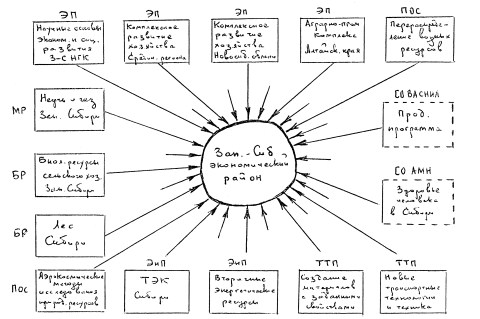 ЭП
Научные основы
эконом. и соц.
развития
З-С НГК
ЭП
Комплексное
развитие
хозяйства
региона
ЭП
Комплексное
развитие
хозяйства
Новосиб. области
ЭП
Аграрно-пром.
комплекс
Алтайск. края
ПОС
Перераспреде-
ление водных
ресурсов
МР
Нефть и газ
Зап. Сибири
СО ВАСХНИЛ
Прод.
программа
Зап.-Сиб.
экономический
район
БР
Биол. ресурсы
сельского хоз.
Зап. Сибири
СО АМН
Здоровье
человека
в Сибири
БР
Лес
Сибири
ПОС
Аэрокосмические
методы
исследования
природ. ресурсов
ЭиП
ТЭК
Сибири
ЭиП
Вторичные
энергетические
ресурсы
ТТП
Создание
материалов
с заданными
свойствами
ТТП
Новые
транспортные
технологии
и техника